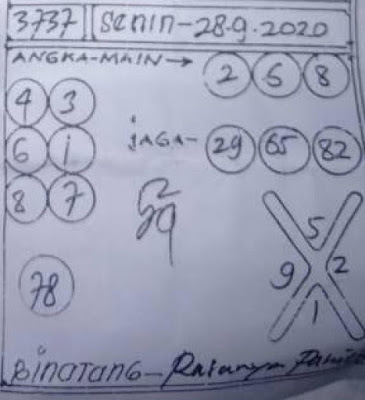 3737 Senin-28-9-2020
ANGKA-MAIN → 2 6 8
4 3
6 1 JAGA- 29 65 82
8 7
5
9 2
1
78
BINATANG-